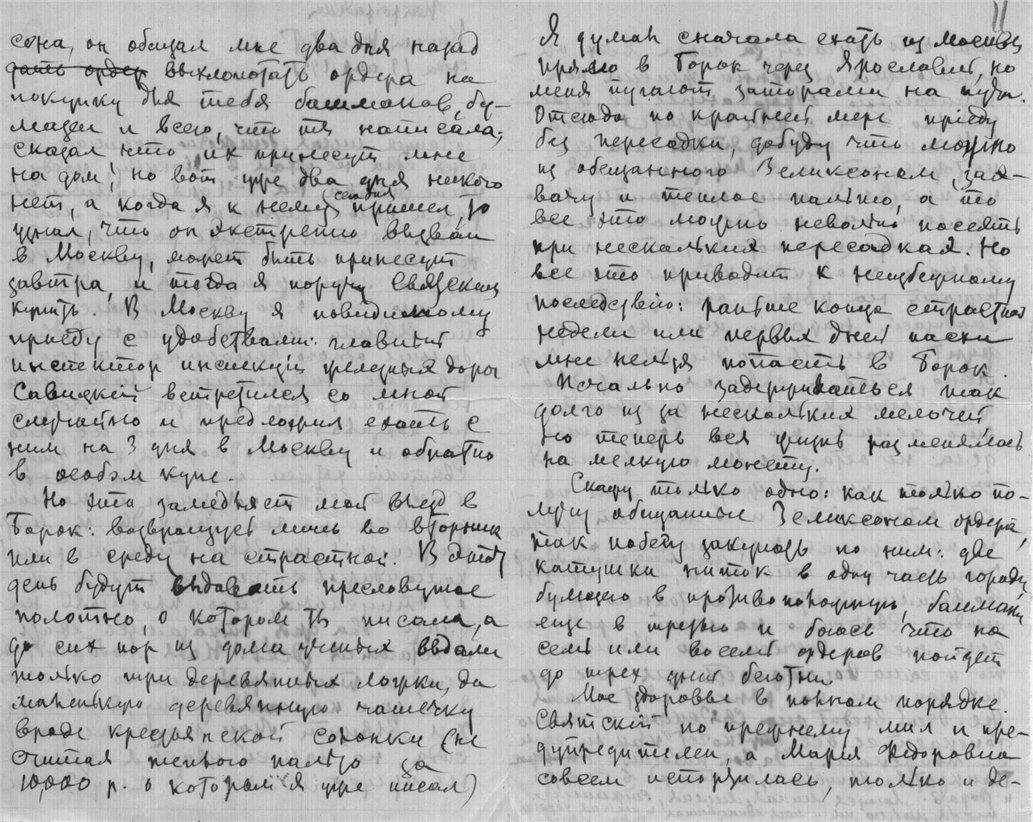 сона, он обещал мне два дня назад
дать ордер выхлопотать ордера на
покупку для тебя башмаков, бу-
маги и всего, что ты написала,
сказал что их принесут мне
на дом; но вот уже два дня никого
нет, а когда я к нему сегодня пришел, то
узнал, что он экстренно вызван
в Москву, может быть принесут
завтра, и тогда я поручу Святским
купить. В Москву я повидимому
приеду с удобствами: главный
инспектор инспекции железных дорог
Савицкий встретился со мной
случайно и предложил ехать с
ним на 3 дня в Москву и обратно
в особом купе.
Но это замедляет мой выезд в
Борок: возвращусь лишь во вторник
или в среду на страстной. В эти
день будут выдавать пресловутое
полотно, о котором ты писала, а
до сих пор из дома ученых выдали
только три деревянных ложки, да
маленькую деревянную чашечку
вроде крестьянской солонки (не
считая теплого пальто за
10,000 р. о котором я уже писал)
11
Я думал сначала ехать из Москвы
прямо в Борок через Ярославль, но
меня пугают заторами на пути.
Отсюда по крайней мере приеду
без пересадки, добуду что можно
из обещанного Зеликсоном, зах-
вачу и теплое пальто, а то
все это можно невольно посеять
при нескольких пересадках. Но
все это приводит к неизбежному
последствию: раньше конца страстной
недели или первых дней пасхи
мне нельзя попасть в Борок.
Печально задерживаться так
долго из за нескольких мелочей,
но теперь вся жизнь разменялась
на мелкую монету.
Скажу только одно: как только по-
лучу обещанные Зеликсоном ордера,
так побегу закупать по ним: две
катушки ниток в одну часть города,
бумагу в противоположную, башмаки
еще в третью и боюсь что на
семь или восемь ордеров пойдет
до трех дней беготни.
Мое здоровье в полном порядке.
Святский по прежнему мил и пре-
дупредителен, а Мария Федоровна
совсем исторзилась, только и де-